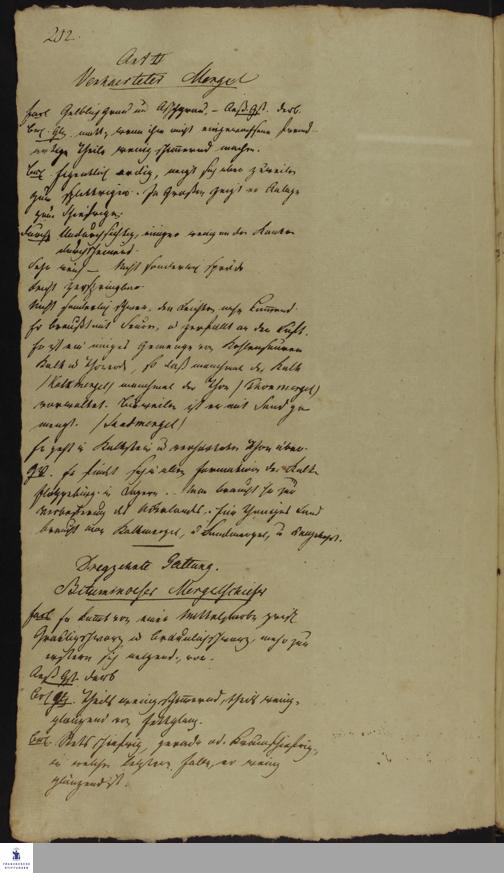 212.
Art II
Verhaerteter Mergel
Farb Gelblichgrau und Aschgrau, – Aeß. Gst. derb.
Brl. Glz. matt, wenn ihm nicht eingewachsene fremd-
artige Theile wenig schimmernd machen.
Bru. Eigentlich erdig, neigt sich aber zuweilen
zum splittrigen. Im Großen zeigt er Anlage
zum Schiefrigen.
Durchs Undurchsichtig, einiger wenig an den Kanten
durchscheinend.
Sehr weich – Nicht sonderlich spröde
leicht zerspringbar
Nicht sonderlich schwer, dem leichten nahe kommend.
Er braußt mit Säuren, u zerfällt an der Luft.
Es ist ein inniges Gemenge von Kohlensauren
Kalk u Thonerde, so daß manchmal der Kalk
/Kalkmergel/ manchmal der Thon /Thonmergel/
vorwaltet. Bisweilen ist er mit Sand ge-
mengt. /Sandmergel/
Er geht in Kalkstein u verhärteten Thon über.
Er findet sich in allen Formationen der Kalk-
flötzgebirge in Lagern. Man braucht ihn zur
Verbeßerung des Ackerlandes. Für Thoniges Land
braucht man Kalkmergel, u Sandmergel, u
Dreyzehnte Gattung.
Bituminoeser Mergelschiefer
Farb Er kommt von einer Mittelfarbe zwisch
Graulichschwarz u bräunlichschwarz, mehr zur
erstern sich neigend, vor.
Aeß. Gst. derb
Brl. Glz. Theils wenigschimmernd, theils wenig-
glänzend von Fettglanz.
Bru. Stets schiefrig, gerade od. krummschiefrig,
in welchen letztern Falle, er wenig
glänzend ist.
FRANCKESCHE
STIFTUNGEN